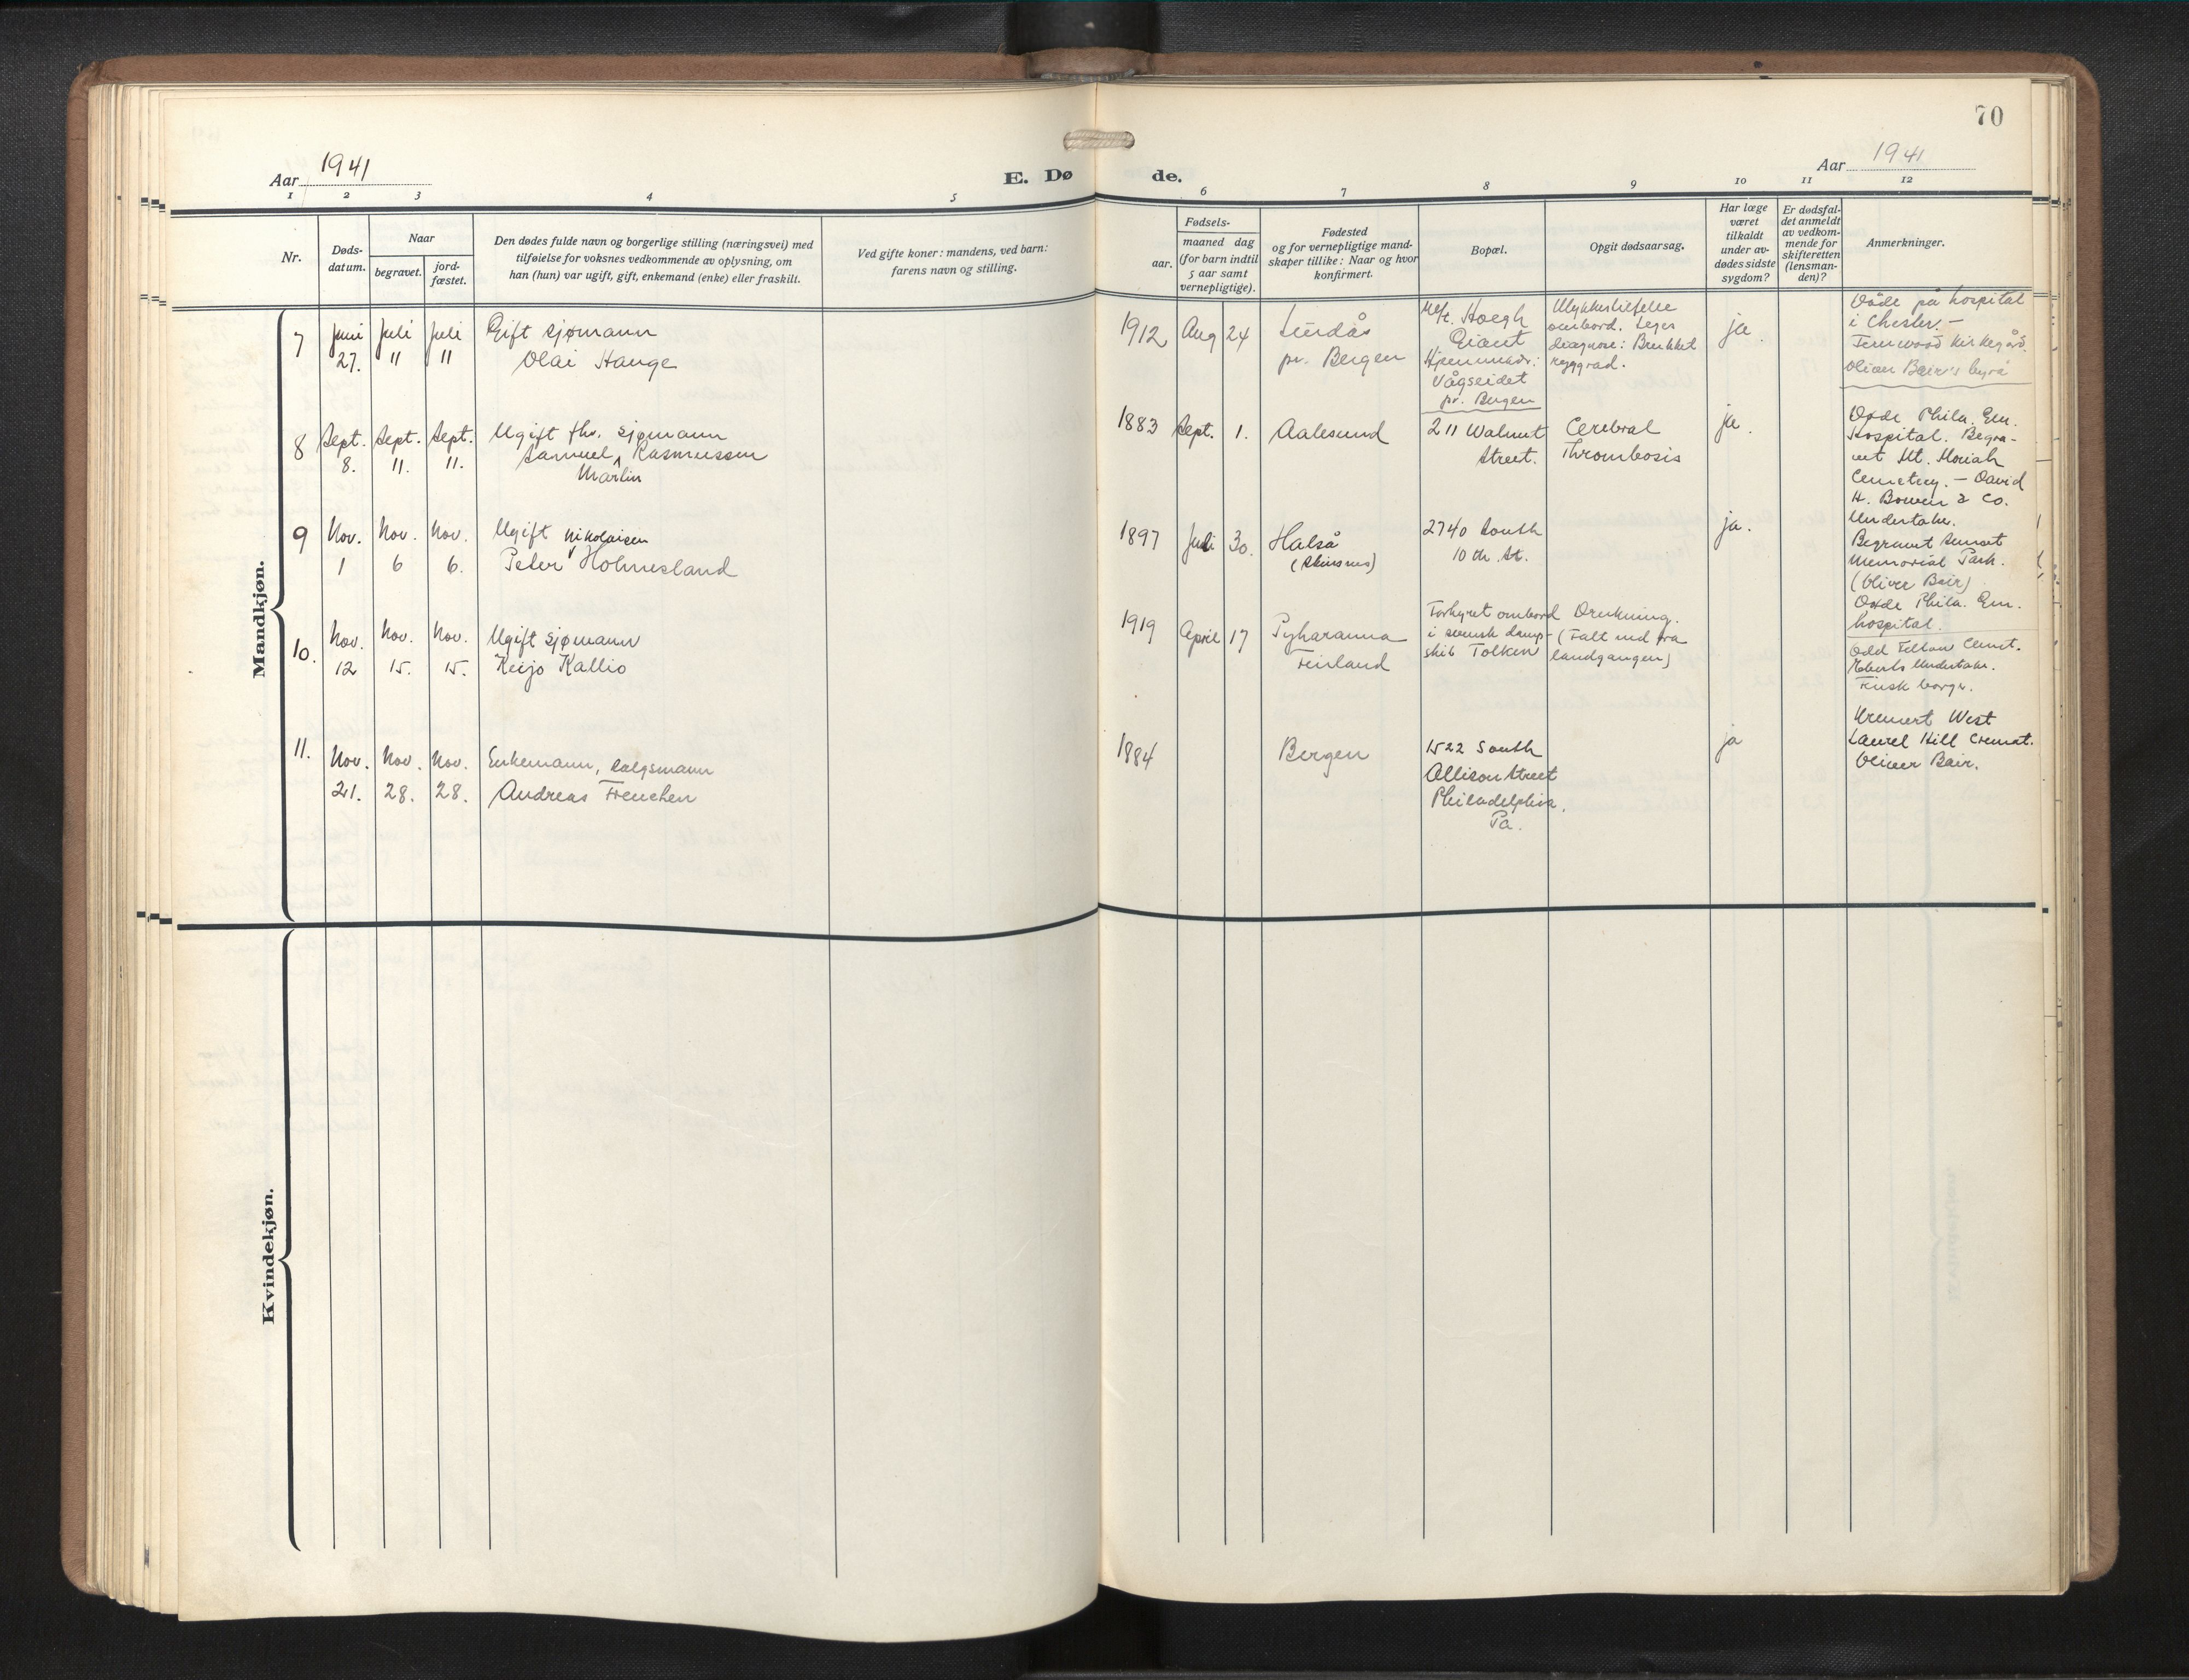 70
Aar 1941
E. Døde.
Aar 1941
1 2 3 4 5 6 7 8 9 10 11 12
Nr.
Døds-
datum.
Naar
begravet.
jord-
fæstet.
Den dødes fulde navn og borgerlige stilling (næringsvei) med
tilføielse for voksnes vedkommende av oplysning, om
han (hun) var ugift, gift, enkemand (enke) eller fraskilt.
Ved gifte koner: mandens, ved barn:
farens navn og stilling.
Fødsels-
aar.
maaned dag
(for barn indtil
5 aar samt
vernepligtige).
Fødested
og for vernepligtige mand-
skaper tillike: Naar og hvor
konfirmert.
Bopæl.
Opgit dødsaarsag.
Har læge
været
tilkaldt
under av-
dødes sidste
sygdom?
Er dødsfal-
det anmeldt
av vedkom-
mende for
skifteretten
(lensman-
den)?
Anmerkninger.
Mandkjøn.
7
Juni
27.
Juli
"
Juli
"
Gift sjømann
Olai Hauge
1912
Aug
24
Lindås
pr. Bergen
M/t. Hoegh
Giant
Hjemmadr:
Vågseidet
pr. Bergen
Ulykkestilfelle
ombord. Leges
diagnose: Brukket
ryggrad.
ja.
Döde på hospital
i Chester. -
Fernwood kirkegård.
Oliver Bair's byrå
8
Sept.
8.
Sept.
11.
Sept.
11.
Ugift fhv. sjømann
Samuel ^ Rasmussen
Martin
1883
Sept.
1.
Aalesund
211 Walnut
Street.
Cerebral
Thrombosis
ja.
Døde Phila. Gen.
Hospital. Begra-
vet Mt. Moriah
Cemetery. - David
H. Bowen & Co.
Undertaker.
9
Nov.
1
Nov.
6
Nov.
6.
Ugift Nikolaisen
Peter Holmesland
1897
Juli
30.
Halså
(Skinsnes)
2740 South
10 th. St.
ja.
Begravet Sunset
Memorial Park.
(Oliver Bair)
Døde Phila. Gen.
hospital.
10.
Nov.
12
Nov.
15.
Nov.
15.
Ugift sjømann
Keijo Kallio
1919
April
17
Pyharanna
Finland
Forhyret ombord
i svensk damp-
skib Tolken
Drukning.
(Falt ned fra
landgangen)
Odd Fellow Cemet.
Undertaker.
Finsk borger.
11.
Nov.
21.
Nov.
28.
Nov.
28.
Enkemann, salgsmann
Andreas Frenchen
1884
Bergen
1522 South
Allison Street
Philadelphia,
Pa.
ja
Kremert West
Laurel Hill Cremat.
Oliver Bair.
Kvindekjøn.